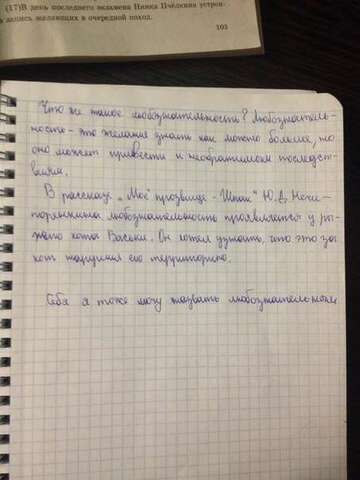 (17)В день последнего экзамена Нинка Пчёлкин устрои-
запись желающих в очередной поход.
103
Что же такое любознательность? Любознатель-
ность - это желание знать как можно больше, но
оно может привести к необратимом последст-
виям.
В рассказе „Моё прозвище - Шпак" Ю.Д. Нечи-
поренкина любознательность проявляется у ры-
жего кота Васьки. Он хотел узнать, что это за
кот нарушил его территорию.
Себя я тоже могу назвать любознательным